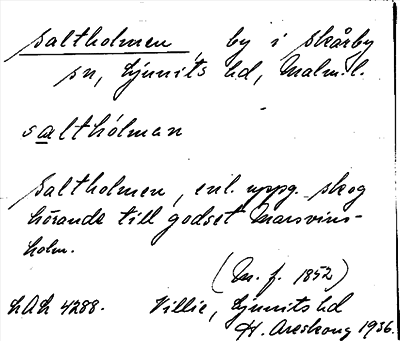 Saltholmen, by i Skårby
sn, Ljunits hd, Malm. l.
salthólman
Saltholmen, enl. uppg. skog
hörande till godset Marsvins-
holm.
(M. f. 1852)
LAL 4288. Villie, Ljunits hd
H. Areskoug 1936.